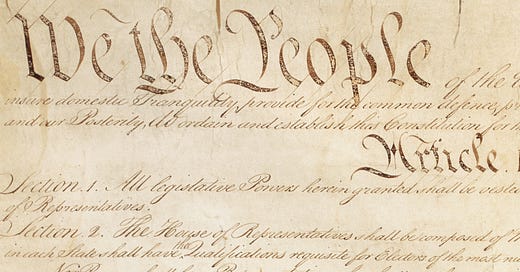 We the People of the
insure domestic Tranquility, provide for the common defence,
and our Posterity, do ordain and establish this Constitution for
Article.
Section. 1. All legislative Powers herein granted shall be
of Representatives.
Section. 2. The House of Representatives shall be composed of
the
in each State shall have Qualifications requisite for Electors of the most
No